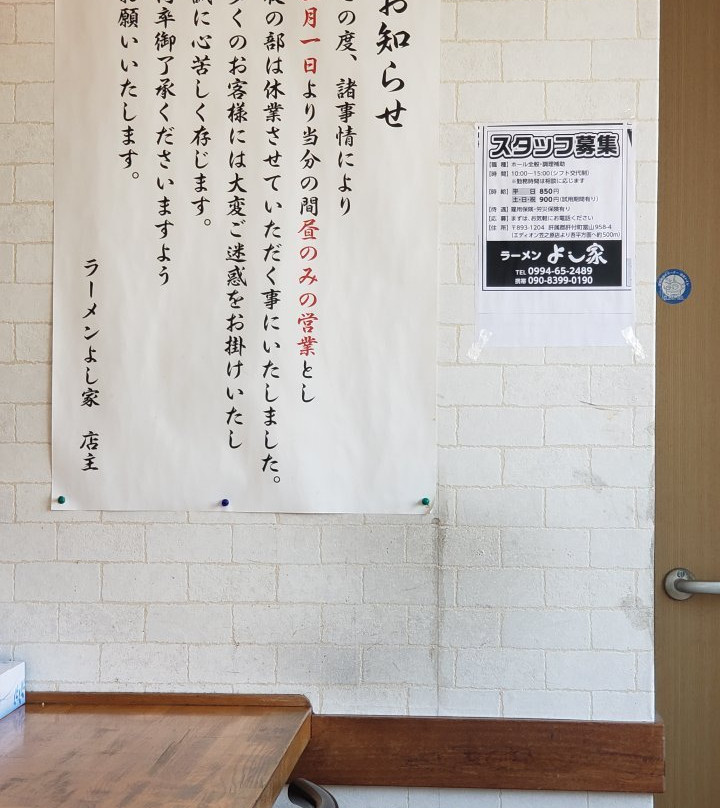 お知らせ
の度、諸事情により
月一日より当分の間昼のみの営業とし
の部は休業させていただく事にいたしました。
くのお客様には大変ご迷惑をお掛けいたし
に心苦しく存じます。
率御了承くださいますよう
お願いいたします。
ラーメンよし家 店主
スタッフ募集
【職 種】ホール全般・調理補助
【時 間】10:00〜15:00(シフト交代制)
※勤務時間は相談に応じます
【時 給】平 日 850円
土・日・祝 900円(試用期間有り)
【待 遇】雇用保険・労災保険有り
【応 募】まずは、お気軽にお電話ください
【住 所】〒893-1204 肝属郡肝付町富山958-4
(エディオン笠之原店より吾平方面へ約500m)
ラーメン よし家
TEL 0994-65-2489
携帯 090-8399-0190